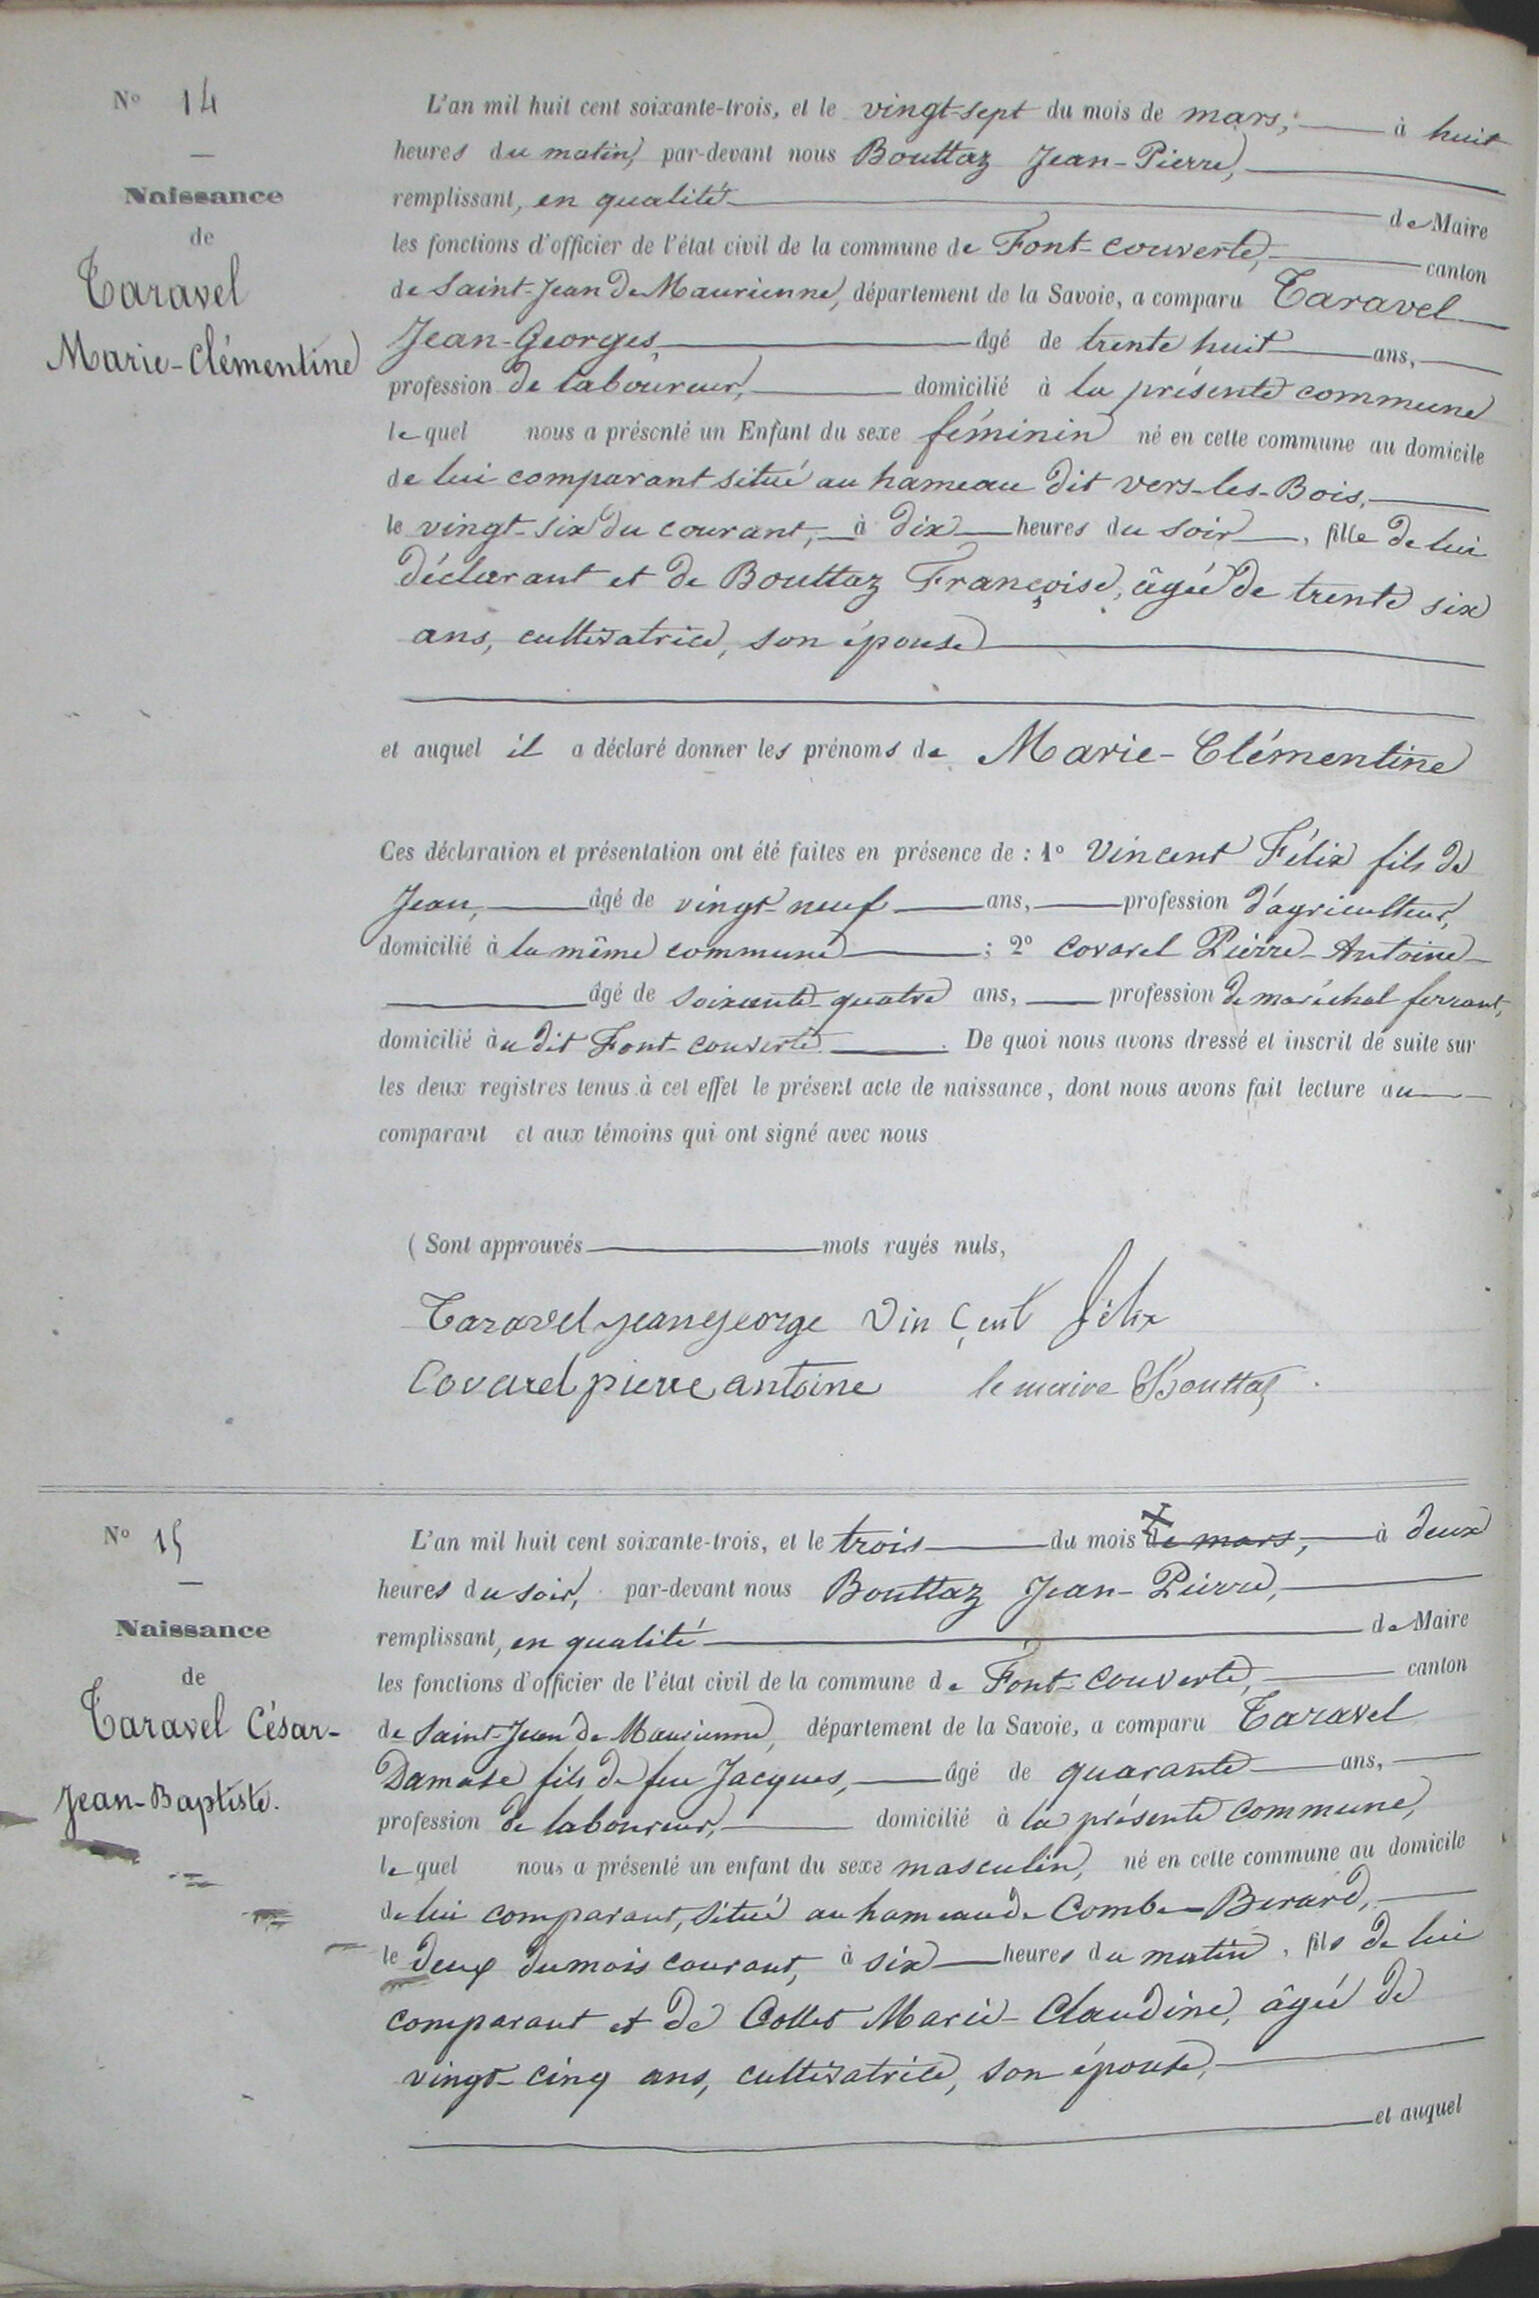 N° 14
Naissance
de
Taravel
Marie-Clémentine
L'an mil huit cent soixante-trois, et le vingt-sept du mois de mars, à huit
heures du matin, par-devant nous Bouttaz Jean-Pierre,
remplissant, en qualité de Maire
les fonctions d'officier de l'état civil de la commune de Font-couverte, canton
de Saint-Jean de Maurienne, département de la Savoie, a comparu Taravel
Jean-Georges, âgé de trente huit ans,
profession de laboureur, domicilié à la présente commune
lequel nous a présenté un Enfant du sexe féminin né en cette commune au domicile
de lui comparant situé au hameau dit vers-les-Bois,
le vingt-six du courant, à dix heures du soir, fille de lui
déclarant et de Bouttaz Françoise, âgée de trente six
ans, cultivatrice, son épouse
et auquel il a déclaré donner les prénoms de Marie-Clémentine
Ces déclaration et présentation ont été faites en présence de : 1° Vincent Félix fils de
Jean, âgé de vingt-neuf ans, profession d'agriculteur,
domicilié à la même commune ; 2° Covarel Pierre-Antoine
âgé de soixante-quatre ans, profession de maréchal ferrant,
domicilié au dit Font-couverte. De quoi nous avons dressé et inscrit de suite sur
les deux registres tenus à cet effet le présent acte de naissance, dont nous avons fait lecture au
comparant et aux témoins qui ont signé avec nous
( Sont approuvés mots rayés nuls,
Taravel jean george Vinçent félix
Covarel pierre antoine le maire Bouttaz
N° 15
Naissance
de
Taravel César-
Jean-Baptiste.
L'an mil huit cent soixante-trois, et le trois du mois de mars, à deux
heures du soir, par-devant nous Bouttaz Jean-Pierre,
remplissant, en qualité de Maire
les fonctions d'officier de l'état civil de la commune de Font-couverte, canton
de Saint-Jean de Maurienne, département de la Savoie, a comparu Taravel
Damase fils de feu Jacques, âgé de quarante ans,
profession de laboureur, domicilié à la présente commune,
lequel nous a présenté un enfant du sexe masculin, né en cette commune au domicile
de lui comparant, situé au hameau de Combe-Berard,
le deux du mois courant, à six heures du matin, fils de lui
comparant et de Collet Marie-Claudine, âgée de
vingt-cinq ans, cultivatrice, son épouse,
et auquel